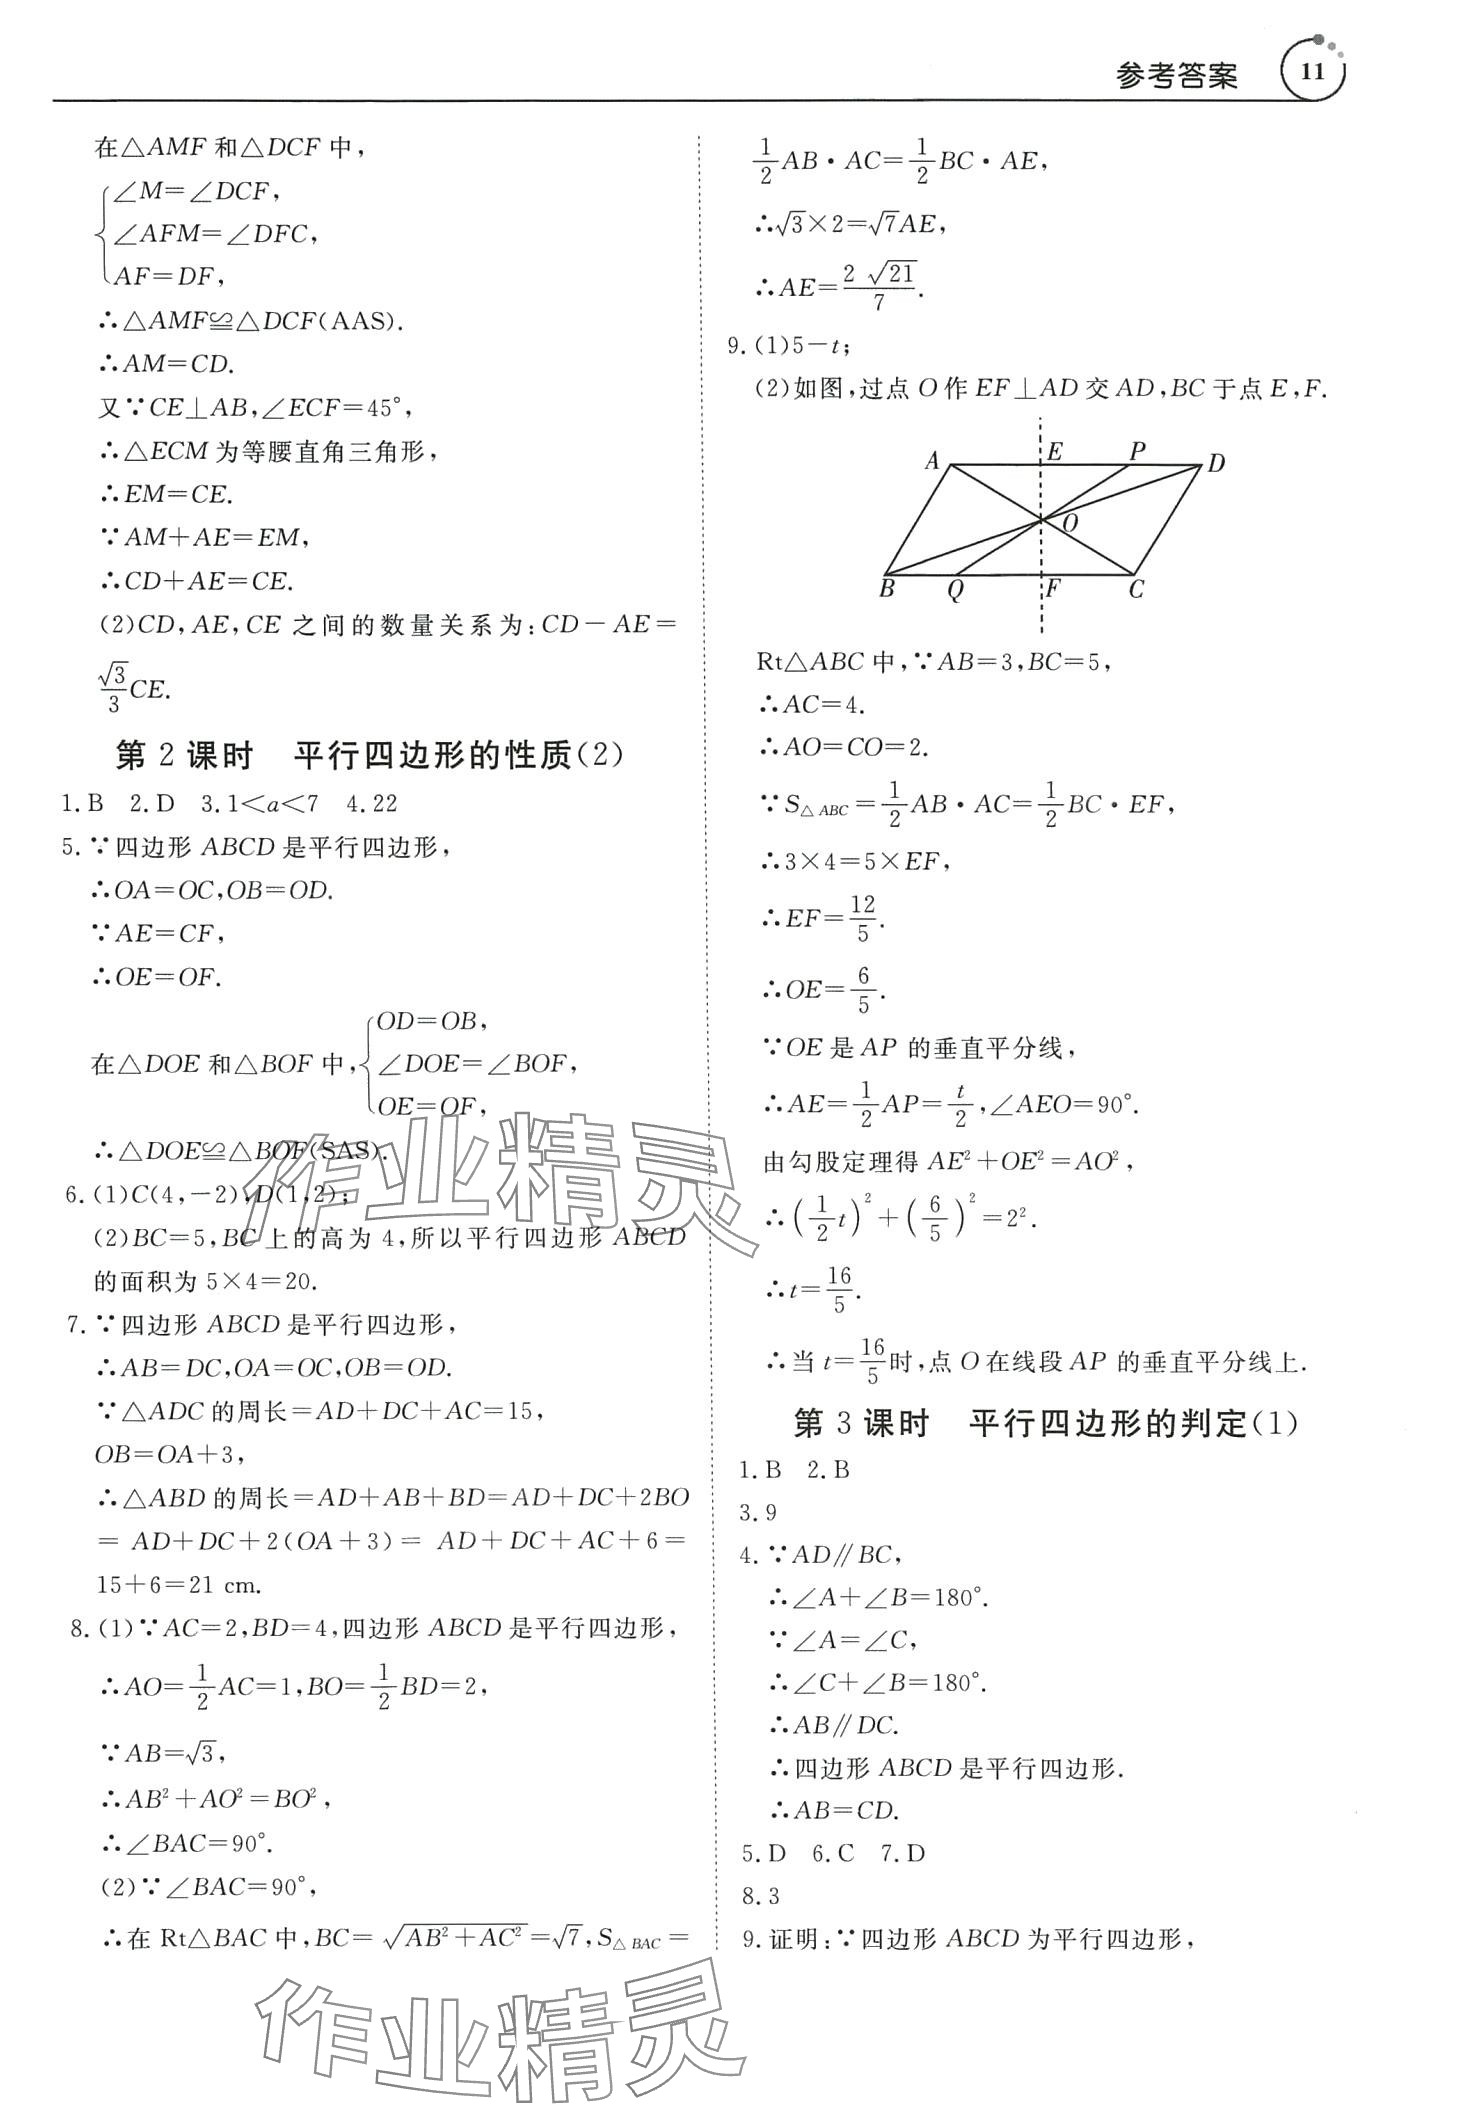 参考答案 11
在△AMF和△DCF中，
∠M=∠DCF，
∠AFM=∠DFC，
AF=DF，
∴△AMF≌△DCF(AAS).
∴AM=CD.
又∵CE⊥AB，∠ECF=45°，
∴△ECM为等腰直角三角形，
∴EM=CE.
∵AM+AE=EM，
∴CD+AE=CE.
(2)CD，AE，CE之间的数量关系为：CD-AE=
√3/3 CE.
第2课时 平行四边形的性质(2)
1.B 2.D 3.1<a<7 4.22
5.∵四边形ABCD是平行四边形，
∴OA=OC，OB=OD.
∵AE=CF，
∴OE=OF.
在△DOE和△BOF中，
OD=OB，
∠DOE=∠BOF，
OE=OF，
∴△DOE≌△BOF(SAS).
6.(1)C(4，-2)，D(1，2)；
(2)BC=5，BC上的高为4，所以平行四边形ABCD
的面积为5×4=20.
7.∵四边形ABCD是平行四边形，
∴AB=DC，OA=OC，OB=OD.
∵△ADC的周长=AD+DC+AC=15，
OB=OA+3，
∴△ABD的周长=AD+AB+BD=AD+DC+2BO
=AD+DC+2(OA+3)=AD+DC+AC+6=
15+6=21 cm.
8.(1)∵AC=2，BD=4，四边形ABCD是平行四边形，
∴AO=1/2 AC=1，BO=1/2 BD=2，
∵AB=√3，
∴AB²+AO²=BO²，
∴∠BAC=90°.
(2)∵∠BAC=90°，
∴在Rt△BAC中，BC=√(AB²+AC²)=√7，S△BAC=
1/2 AB·AC=1/2 BC·AE，
∴√3×2=√7AE，
∴AE=2√21/7.
9.(1)5-t；
(2)如图，过点O作EF⊥AD交AD，BC于点E，F.
A E P D
O
B Q F C
Rt△ABC中，∵AB=3，BC=5，
∴AC=4.
∴AO=CO=2.
∵S△ABC=1/2 AB·AC=1/2 BC·EF，
∴3×4=5×EF，
∴EF=12/5.
∴OE=6/5.
∵OE是AP的垂直平分线，
∴AE=1/2 AP=t/2，∠AEO=90°.
由勾股定理得AE²+OE²=AO²，
∴(1/2 t)²+(6/5)²=2².
∴t=16/5.
∴当t=16/5时，点O在线段AP的垂直平分线上.
第3课时 平行四边形的判定(1)
1.B 2.B
3.9
4.∵AD∥BC，
∴∠A+∠B=180°.
∵∠A=∠C，
∴∠C+∠B=180°.
∴AB∥DC.
∴四边形ABCD是平行四边形.
∴AB=CD.
5.D 6.C 7.D
8.3
9.证明：∵四边形ABCD为平行四边形，
作业精灵
作业精灵